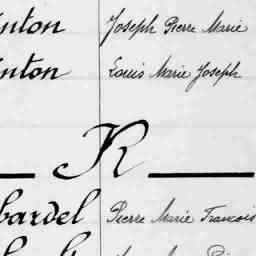 nton Joseph Pierre Marie
nton Louis Marie Joseph
R
bardel Pierre Marie Francois